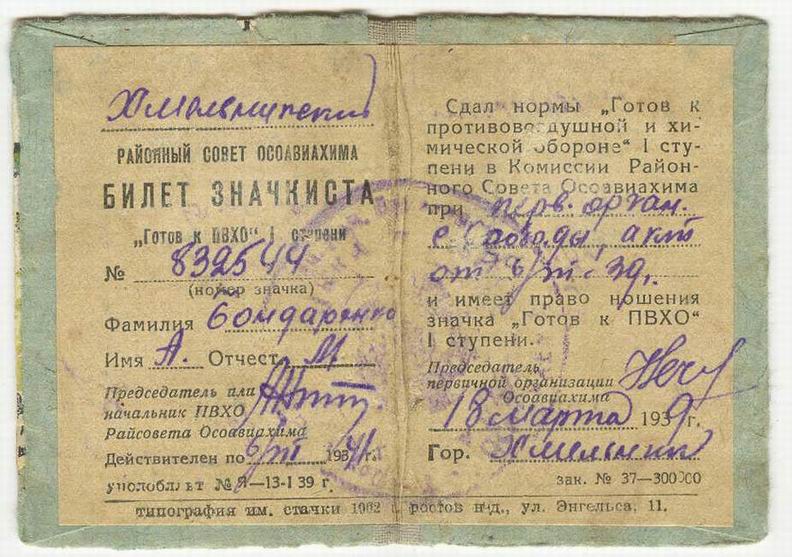 Хмельницкий
РАЙОННЫЙ СОВЕТ ОСОАВИАХИМА
БИЛЕТ ЗНАЧКИСТА
„Готов к ПВХО" I ступени
№ 832544
(номер значка)
Фамилия Бондаренко
Имя А. Отчест. М.
Председатель или
начальник ПВХО
Райсовета Осоавиахима
Действителен по 6/III 1941 г.
уполобл⁠лит № -13-I 39 г.
Сдал нормы „Готов к
противовоздушной и хи-
мической обороне" I сту-
пени в Комиссии Район-
ного Совета Осоавиахима
при перв. орган.
с. Слободы, акт
от 6/III-39г.
и имеет право ношения
значка „Готов к ПВХО"
I ступени.
Председатель
первичной организации
Осоавиахима
18 марта 1939 г.
Гор. Хмельник
зак. № 37—300000
типография им. стачки 1902 г. ростов н-д., ул. Энгельса, 11.